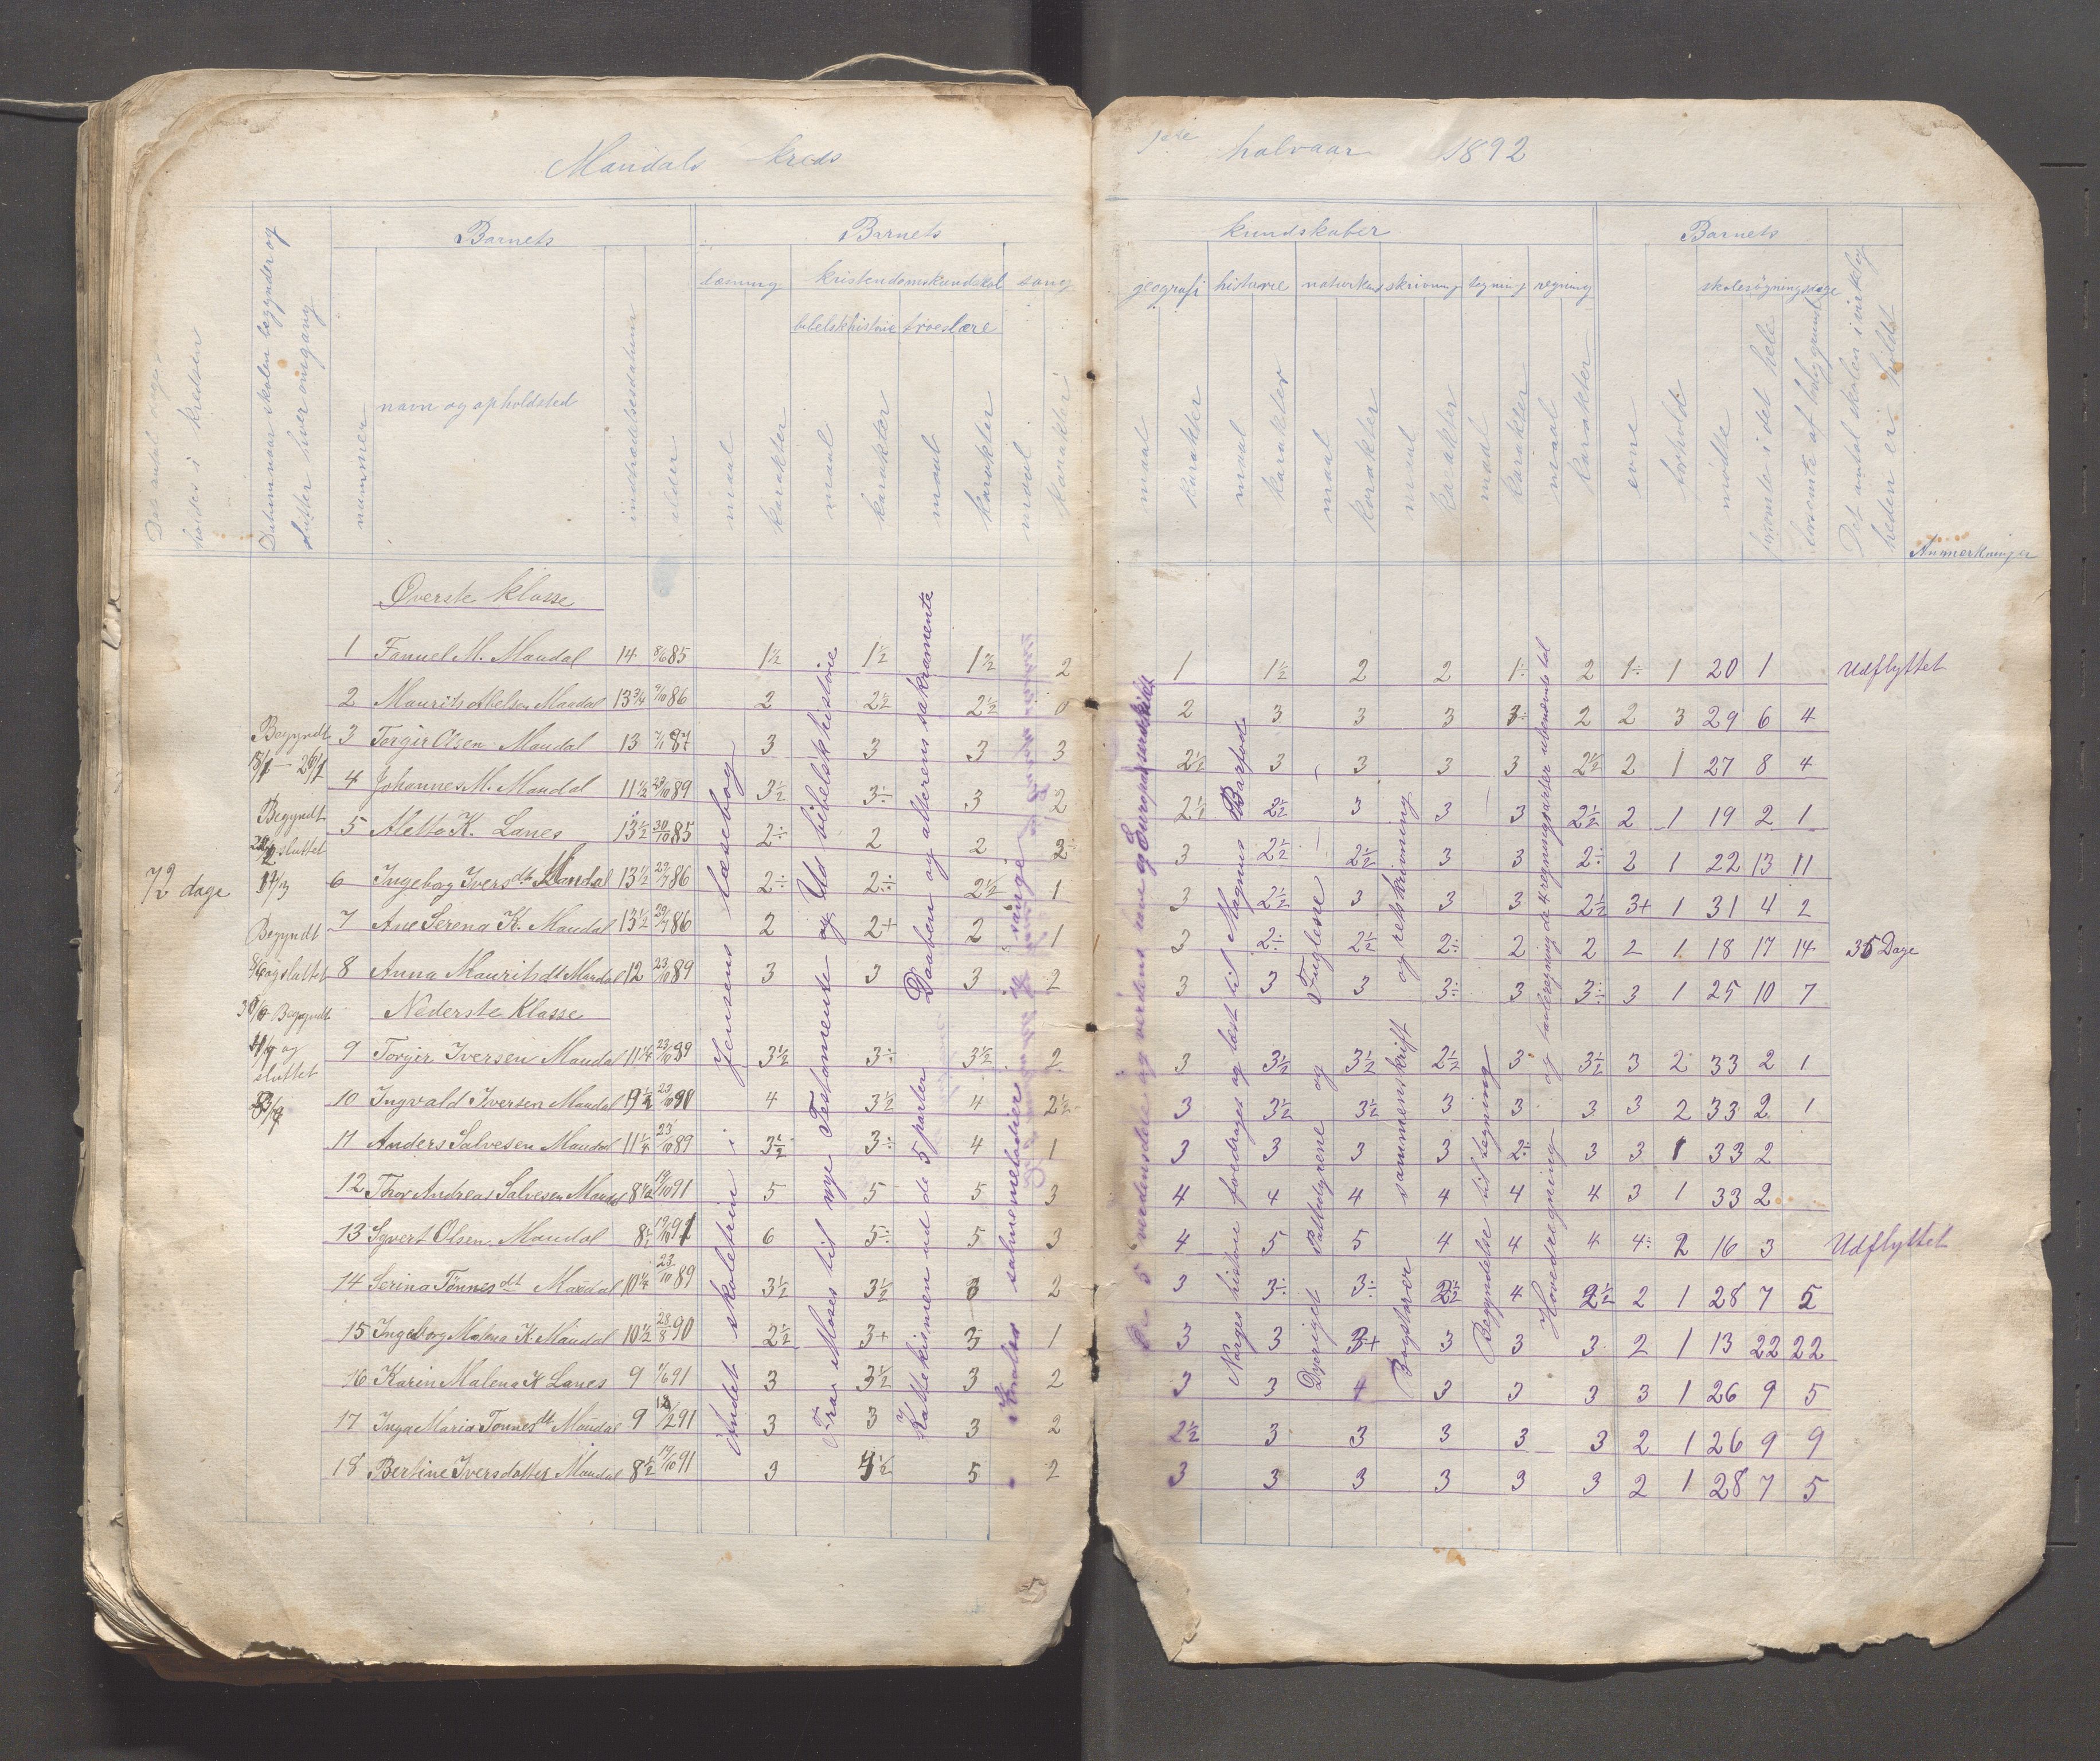 Maudals kreds
1ste halvaar 1892
Barnets
Barnets
kundskaber
Barnets
læsning kristendomskundskab sang
geografi historie naturkund skrivning tegning regning
skolesøgningsdage
bibelsk historie troeslære
Datum naar skolen begynder og
slutter hver omgang
nummer
navn og opholdsted
indtrædelsesdatum
alder
maal karakter maal karakter maal karakter maal karakter
maal karakter maal karakter maal karakter maal karakter maal karakter maal karakter
evne
forhold
mødte
forsømte i det hele
forsømte af lovlig grund
Det antal dage skolen i virkelig
heden er holdt
Anmerkninger
Øverste klasse
1 Fanuel M. Maudal 14 8/6 85 1½ 1½ 1½ 2 1 1½ 2 2 1÷ 2 1÷ 1 20 1 Udflyttet
2 Maurits Abelsen Maudal 13¾ 86 2 2½ 2½ 0 2 3 3 3 3 2 2 3 29 6 4
3 Torgir Olsen Maudal 13 87 3 3 3 3 2½ 3 3 3 3 2½ 2 1 27 8 4
4 Johannes M. Maudal 11½ 23/10 89 3½ 3÷ 3 2 2½ 2½ 3 3 3 2½ 2 1 19 2 1
5 Aletta K. Lanes 13½ 30/10 85 2÷ 2 2 2÷ 3 2½ 2½ 3 3 2÷ 2 1 22 13 11
6 Ingeborg Iversdt Maudal 13½ 29/7 86 2÷ 2÷ 2½ 1 3 2½ 3 3 3 2½ 3+ 1 31 4 2
7 Ane Serena K. Maudal 13½ 29/7 86 2 2+ 2 1 3 2÷ 2½ 2÷ 2 2 2 1 18 17 14 35 Dage
8 Anna Mauritsdt Maudal 12 23/10 89 3 3 3 2 3 3 3 3÷ 3 3÷ 3 1 25 10 7
Nederste Klasse
9 Torgir Iversen Maudal 11¼ 23/10 89 3½ 3÷ 3½ 2 3 3½ 3½ 2½ 3 3½ 3 2 33 2 1
10 Ingvald Iversen Maudal 9½ 23/10 4 3½ 4 2½ 3 3½ 3½ 3 3 3 3 2 33 2 1
11 Anders Salvesen Maudal 11¼ 23/10 89 3½ 3÷ 4 1 3 3 3 3 2÷ 3 3 1 33 2
12 Thor Andreas Salvesen Maudal 8½ 19/10 91 5 5 5 3 4 4 4 4 4 4 3 1 33 2
13 Syvert Olsen Maudal 8½ 19/10 91 6 5÷ 5 3 4 5 5 4 4 4 4÷ 2 16 3 Udflyttet
14 Serina Tønnesdt Maudal 10¼ 23/10 89 3½ 3½ 3 2 3 3÷ 3÷ 2½ 4 2½ 2 1 28 7 5
15 Ingeborg Malena K Maudal 10½ 28/8 90 2½ 3+ 3 1 3 3 3+ 3 3 3 2 1 13 22 22
16 Karin Malena K Lanes 9 91 3 3½ 3 2 3 3 4 3 3 3 3 1 26 9 5
17 Inga Maria Tønnesdt Maudal 9 91 3 3 3 2 2½ 3 3 3 3 3 2 1 26 9 9
18 Bertine Iversdatter Maudal 8½ 19/10 91 3 4½ 5 2 3 3 3 3 3 3 2 1 28 7 5
72 dage
Begyndt
Begyndt
sluttet
Begyndt
og sluttet
Begyndt
og
sluttet
Andet skoletrin i Jensens læsebog
Fra Moses til nye Testamente og Uds bibelsk historie
Kattekismen ud de 5 parter Daaben og alterens sakramente
salmemelodier sange
De 5 verdensdele og verdens have og Europas
Norges historie foredrages og læst til Magnus Barfod
Dyreriget Pattedyrene og Fuglene
Bogstaver sammenskrift og retskrivning
Begyndelse til tegning
Hovedregning og tavleregning de 4 regningsarter ubenevnte tal